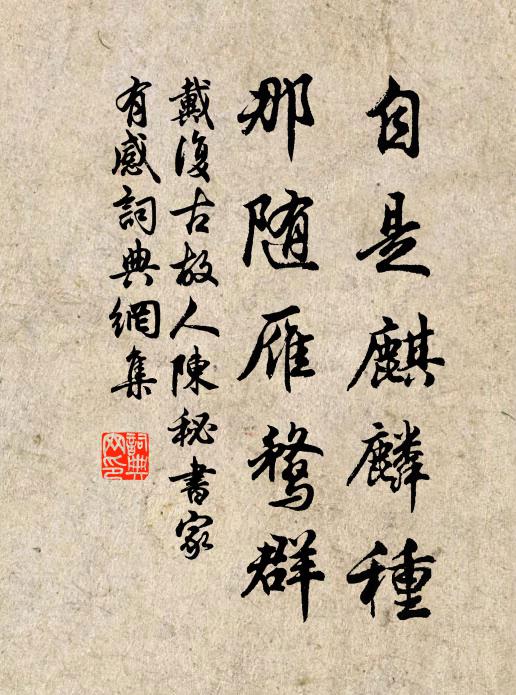 自是麒麟種
那随雁鶩群
戴復古故人陳秘書家
有感詞典網集
詞典
网印